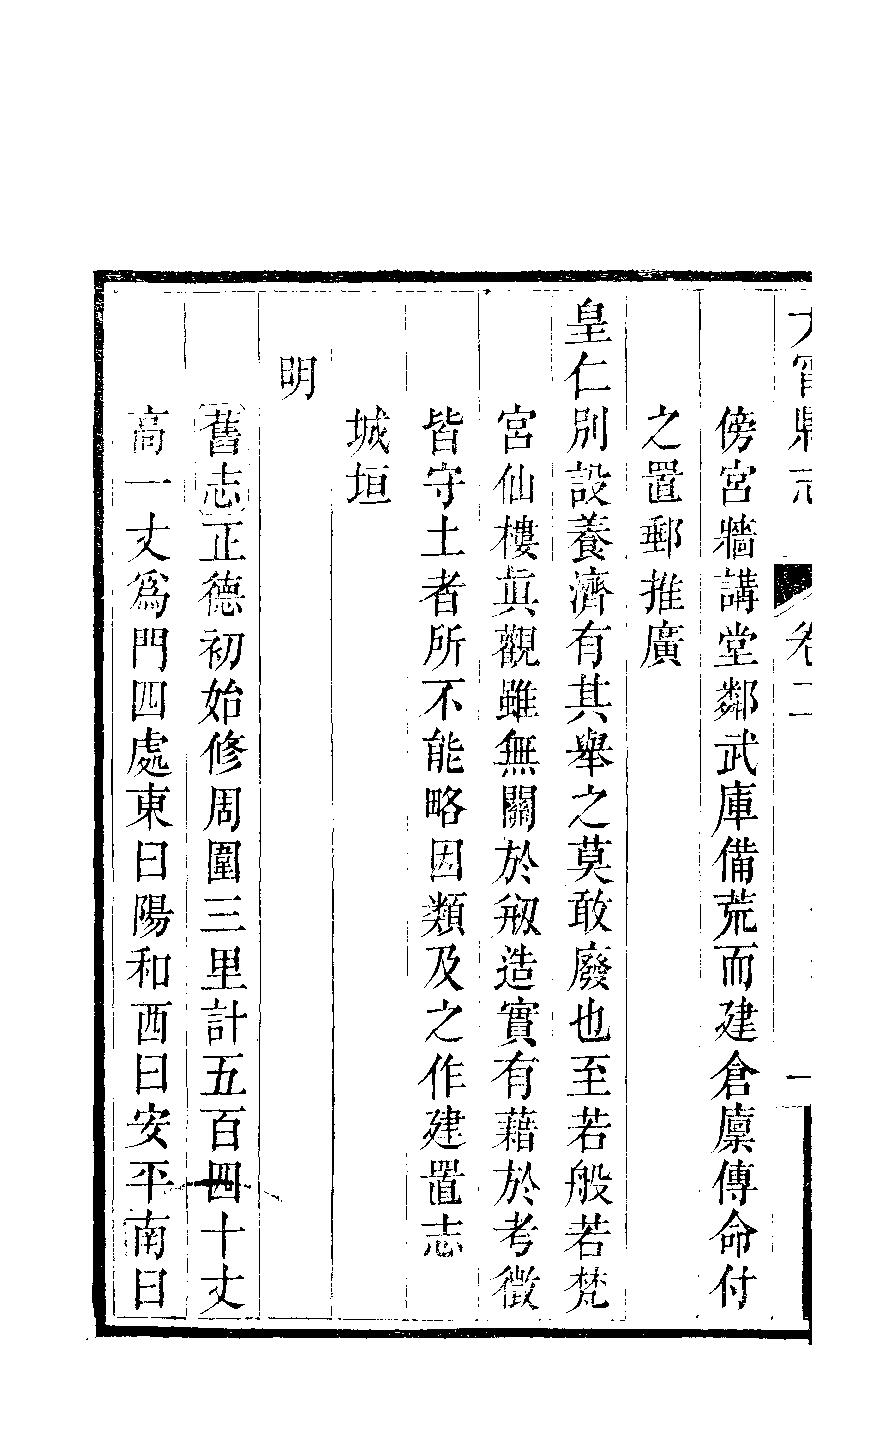 大甯縣志 卷二 一
傍宮牆講堂鄰武庫備荒而建倉廩傳命付
之置郵推廣
皇仁別設養濟有其舉之莫敢廢也至若般若梵
宮仙樓眞觀雖無關於剏造實有藉於考徵
皆守土者所不能略因類及之作建置志
城垣
明
舊志正德初始修周圍三里計五百四十丈
高一丈爲門四處東曰陽和西曰安平南曰